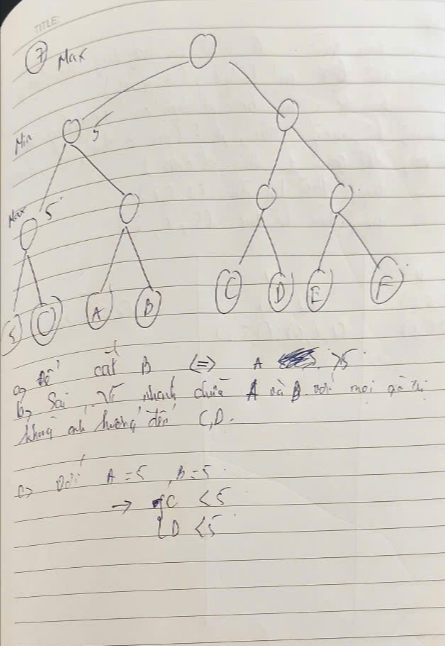 TITLE:
7 Max
Min 5
Max 5
5 0 A B C D E F
a> Để cắt B <=> A >5
b> Sai, vì nhánh chứa A và B với mọi giá trị
không ảnh hưởng đến C, D.
c> Với A = 5, B = 5.
→ { C < 5
D < 5